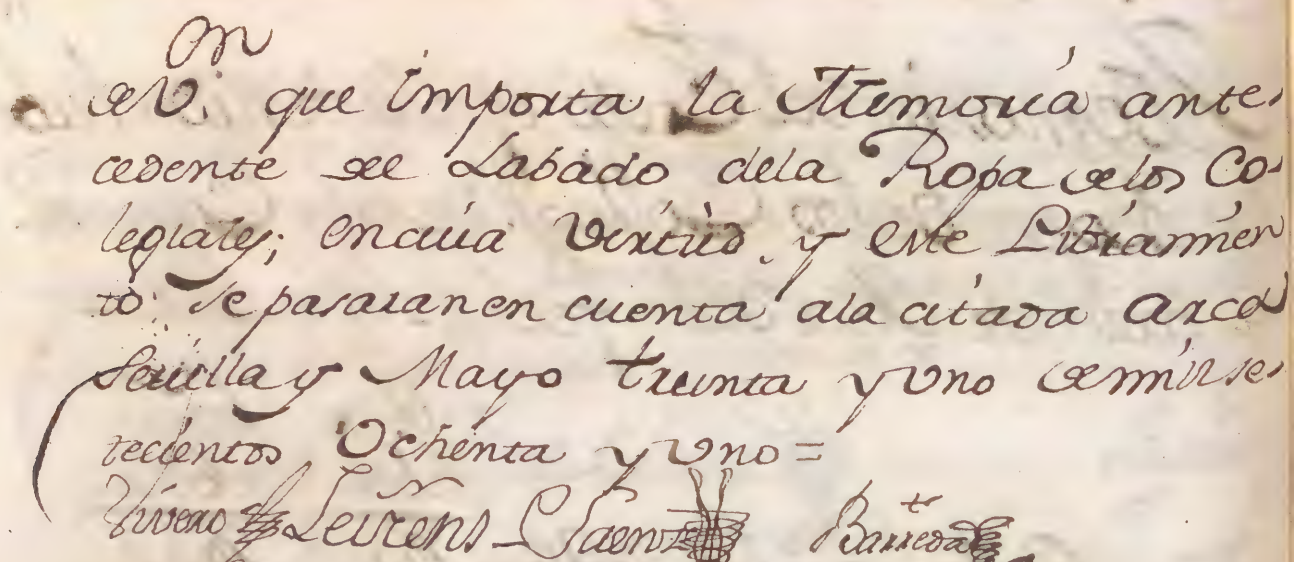 on
de V. que importa la Memoria ante-
cedente del Labado dela Ropa de los Co-
legiales; en cuia Virtud, y este Libramien
to se pasaran en cuenta ala citada Arca
Sevilla y Mayo treinta y uno de mil se-
tecientos Ochenta y uno =
Vivero Leirens Saenz Barreda